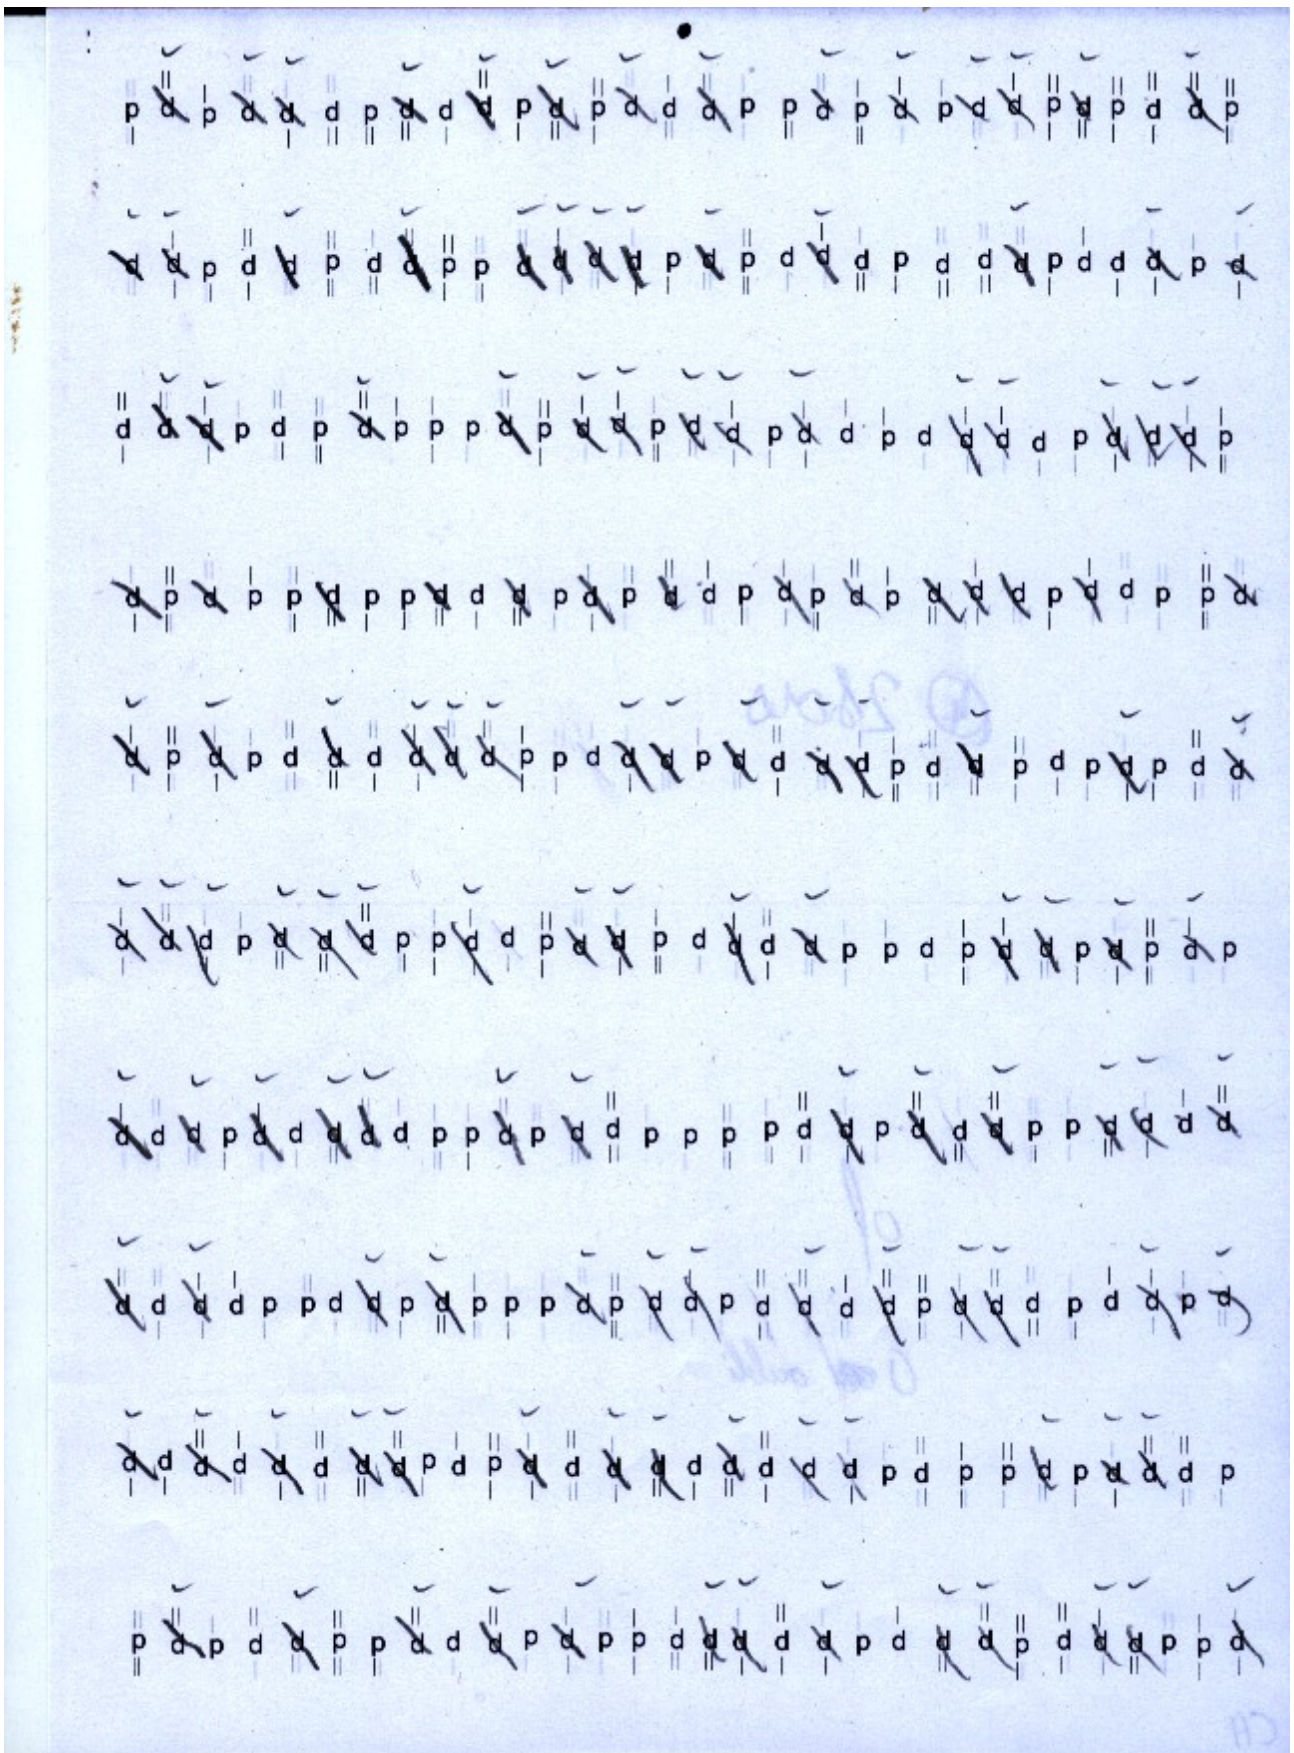 p d p d d d p d d d p d p d d d p p d p d p d d p d p d d p
d d p d d p d d p p d d d d p d p d d d p d d d p d d d p d
d d d p d p d p p p d p d d p d d p d d p d d d d p d d d p
d p d p p d p p d d d p d p d d p d p d p d d d p d d p p d
d p d p d d d d d d p p d d d p d d d d p d d p d p d p d d
d d d p d d d p p d d p d d p d d d d p p d p d d p d p d p
d d d p d d d d d p p d p d d p p p p d d p d d d p p d d d d
d d d d p p d d p d p p p d p d d p d d d d p d d d p d d p d
d d d d d d d d p d p d d d d d d d d d p d p p d p d d d p
p d p d d p p d d d p d p p d d d d d p d d d p d d d p p d